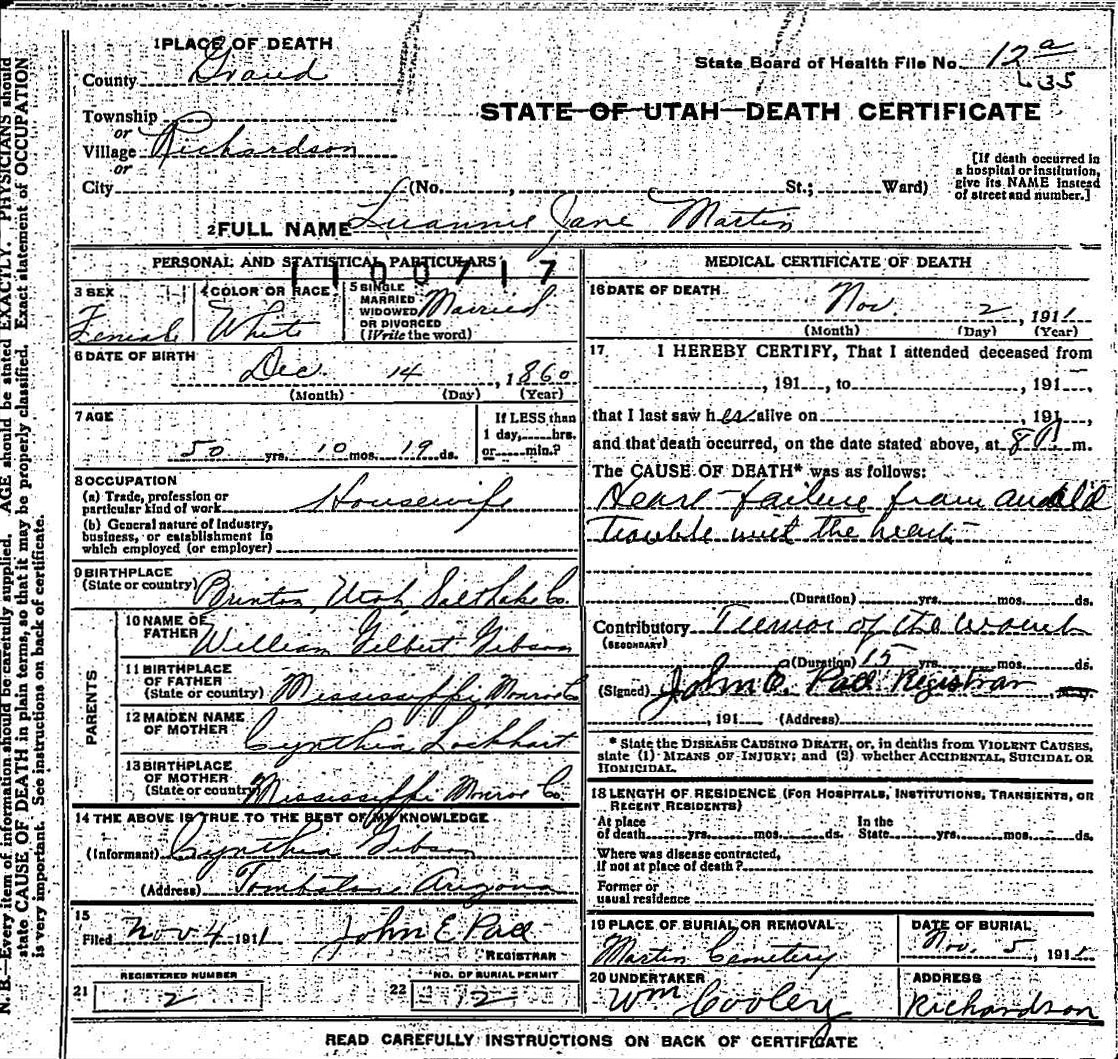 N. B.—Every item of information should be carefully supplied. AGE should be stated EXACTLY. PHYSICIANS should
state CAUSE OF DEATH in plain terms, so that it may be properly classified. Exact statement of OCCUPATION
is very important. See instructions on back of certificate.
1 PLACE OF DEATH
County Grand
State Board of Health File No. 12 a
35
STATE OF UTAH—DEATH CERTIFICATE
Township
or
Village Richardson
or
City (No. , St.; Ward)
[If death occurred in
a hospital or institution,
give its NAME instead
of street and number.]
2 FULL NAME Luannie Jane Martin
PERSONAL AND STATISTICAL PARTICULARS
1100717
3 SEX
Female
4 COLOR OR RACE
White
5 SINGLE
MARRIED
WIDOWED
OR DIVORCED
(Write the word)
Married
6 DATE OF BIRTH
Dec. 14, 1860
(Month) (Day) (Year)
7 AGE
50 yrs. 10 mos. 19 ds.
If LESS than
1 day, hrs.
or min.?
8 OCCUPATION
(a) Trade, profession or
particular kind of work Housewife
(b) General nature of Industry,
business, or establishment in
which employed (or employer)
9 BIRTHPLACE
(State or country) Brinton, Utah, Salt Lake Co.
PARENTS
10 NAME OF
FATHER William Gilbert Gibson
11 BIRTHPLACE
OF FATHER
(State or country) Mississippi, Monroe Co
12 MAIDEN NAME
OF MOTHER Cynthia Lockhart
13 BIRTHPLACE
OF MOTHER
(State or country) Mississippi Monroe Co.
14 THE ABOVE IS TRUE TO THE BEST OF MY KNOWLEDGE
(Informant) Cynthia Gibson
(Address) Tombstone Arizona
15
Filed Nov 4 1911 John E Pace
REGISTRAR
REGISTERED NUMBER
21 2
NO. OF BURIAL PERMIT
22 2
MEDICAL CERTIFICATE OF DEATH
16 DATE OF DEATH
Nov. 2, 1911
(Month) (Day) (Year)
17 I HEREBY CERTIFY, That I attended deceased from
, 191 , to , 191 ,
that I last saw her alive on 191
and that death occurred, on the date stated above, at 8 m.
The CAUSE OF DEATH* was as follows:
Heart failure from an old
Trouble with the heart
(Duration) yrs. mos. ds.
Contributory Tumor of the womb
(SECONDARY)
(Duration) 15 yrs. mos. ds.
(Signed) John E. Pace Registrar
, 191 (Address)
* State the DISEASE CAUSING DEATH, or, in deaths from VIOLENT CAUSES,
state (1) MEANS OF INJURY; and (2) whether ACCIDENTAL, SUICIDAL OR
HOMICIDAL.
18 LENGTH OF RESIDENCE (FOR HOSPITALS, INSTITUTIONS, TRANSIENTS, OR
RECENT RESIDENTS)
At place
of death yrs. mos. ds.
In the
State yrs. mos. ds.
Where was disease contracted,
If not at place of death?
Former or
usual residence
19 PLACE OF BURIAL OR REMOVAL
Martin Cemetery
DATE OF BURIAL
Nov. 5, 1911
20 UNDERTAKER
Wm Cooley
ADDRESS
Richardson
READ CAREFULLY INSTRUCTIONS ON BACK OF CERTIFICATE